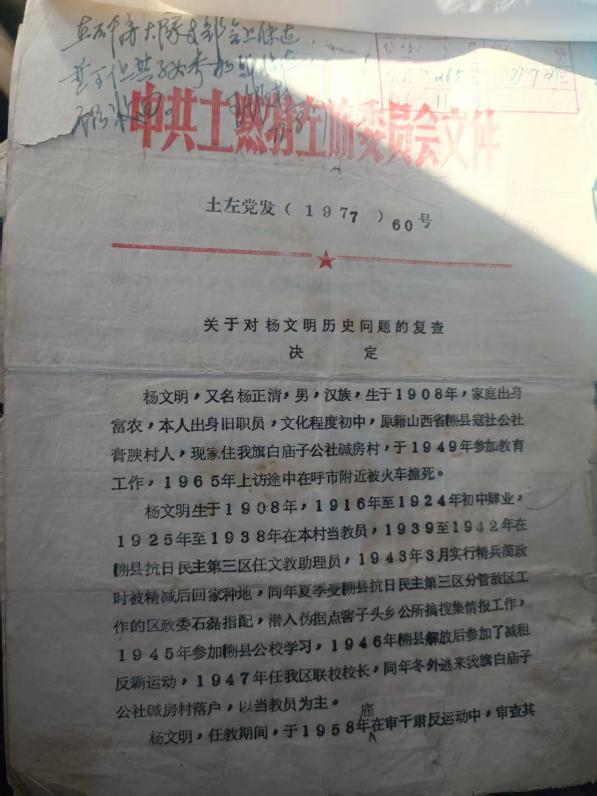 中共土默特左旗委员会文件
土左党发(1977)60号
关于对杨文明历史问题的复查
决 定
杨文明,又名杨正清,男,汉族,生于1908年,家庭出身
富农,本人出身旧职员,文化程度初中,原籍山西省朔县寇社公社
膏腴村人,现家住我旗白庙子公社碱房村,于1949年参加教育
工作,1965年上访途中在呼市附近被火车撞死。
杨文明生于1908年,1916年至1924年初中肄业,
1925年至1938年在本村当教员,1939至1942年在
朔县抗日民主第三区任文教助理员,1943年3月实行精兵简政
时被精减后回家种地,同年夏季受朔县抗日民主第三区分管敌区工
作的区政委石磊指配,潜入伪据点窖子头乡公所搞搜集情报工作,
1945年参加朔县公校学习,1946年朔县解放后参加了减租
反霸运动,1947年任我区联校校长,同年冬外逃来我旗白庙子
公社碱房村落户,以当教员为主。
杨文明,任教期间,于1958年底在审干肃反运动中,审查其